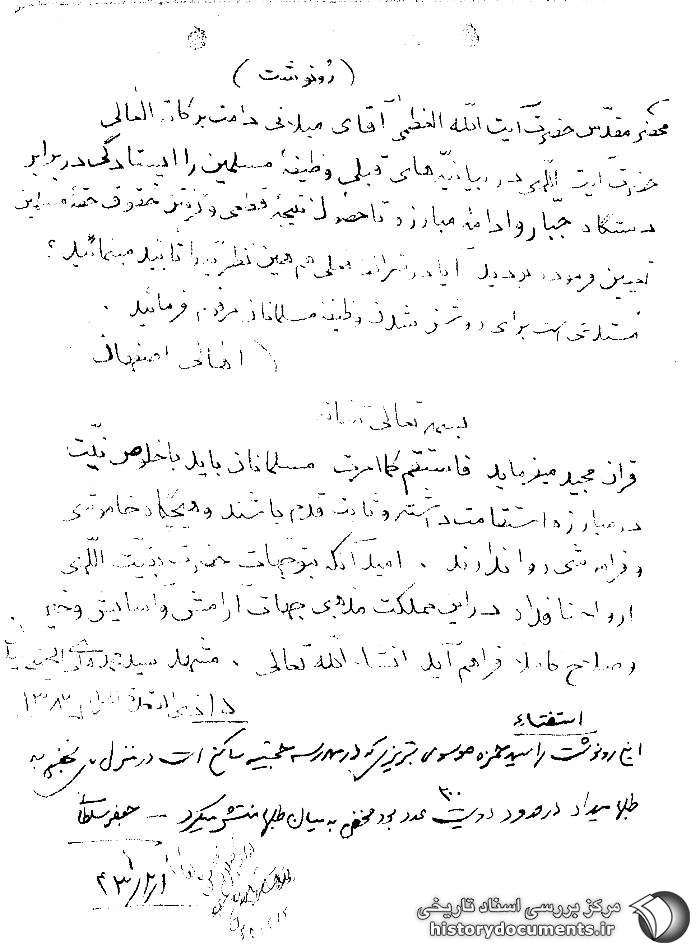 ( رونوشت )
محضر مقدس حضرت آیت الله العظمی آقای میلانی دامت برکاته العالی
حضرت آیت اللهی در بیانیه های قبلی وظیفهٔ مسلمین را ایستادگی در برابر
دستگاه جبار و ادامهٔ مبارزه تا حصول نتیجهٔ قطعی و حقوق حقهٔ مسلمین
تعیین فرموده بودید آیا در شرائط فعلی هم همین نظریه را تأیید مینمائید ؟
مستدعی است برای روشن شدن وظیفه مسلمانان مرقوم فرمائید .
اهالی اصفهان
بسمه تعالی شأنه
قرآن مجید میفرماید فاستقم کما امرت مسلمانان باید با خلوص نیّت
در مبارزه استقامت داشته و ثابت قدم باشند و هیچگاه خاموشی
و فراموشی روا ندارند . امید آنکه بتوجهات حضرت بقیّت اللهی
ارواحنا فداه در این مملکت مذهبی جهات آرامش و آسایش و خیر
و صلاح کاملا فراهم آید انشاء الله تعالی . مشهد سید محمد هادی الحسینی
۱۳۸۳
استفتاء
این رونوشت را سید حمزه موسوی تبریزی که در مدرسه حجتیه ساکن است در منزل به
طلبها میداد در حدود دویست ۳۰۰ عدد بود مخفی به میان طلبها منتشر میکرد –
۴۳/۲/۱
مرکز بررسی اسناد تاریخی
historydocuments.ir